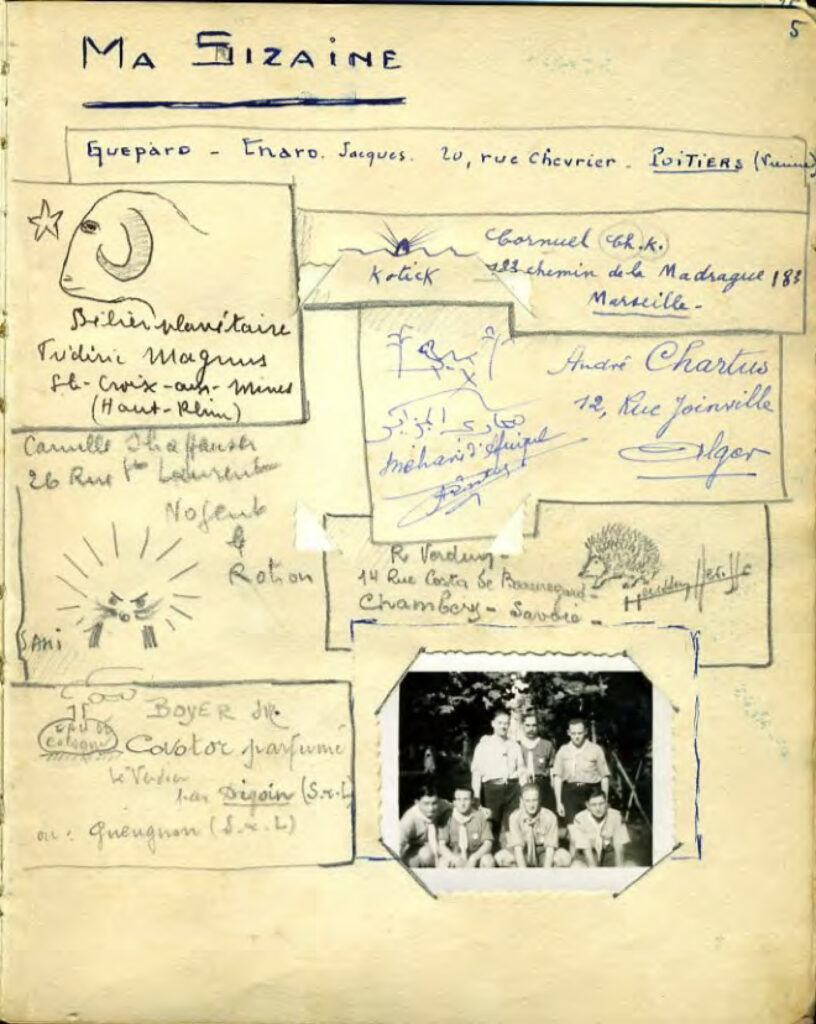 5
Ma Sizaine
Guepard - Enard. Jacques. 20, rue Chevrier - POITIERS (Vienne)
Bélier planétaire
Frédéric Magnus
Ste-Croix-aux-Mines
(Haut-Rhin)
Kotick
Cornuel Ch. K.
183 chemin de la Madrague 183
Marseille -
André Chartus
12, Rue Joinville
Alger
مهاري الجزائر
Méhari d'Afrique
Camille
26 Rue St Laurent
Nogent
le
Rotrou
SANI
R. Verduny -
14 Rue Costa de Beauregard -
Chambéry - Savoie -
Eau de
Cologne
BOYER
Castor parfumé
le Verdier
par Digoin (S.&L)
ou : Gueugnon (S.&L)